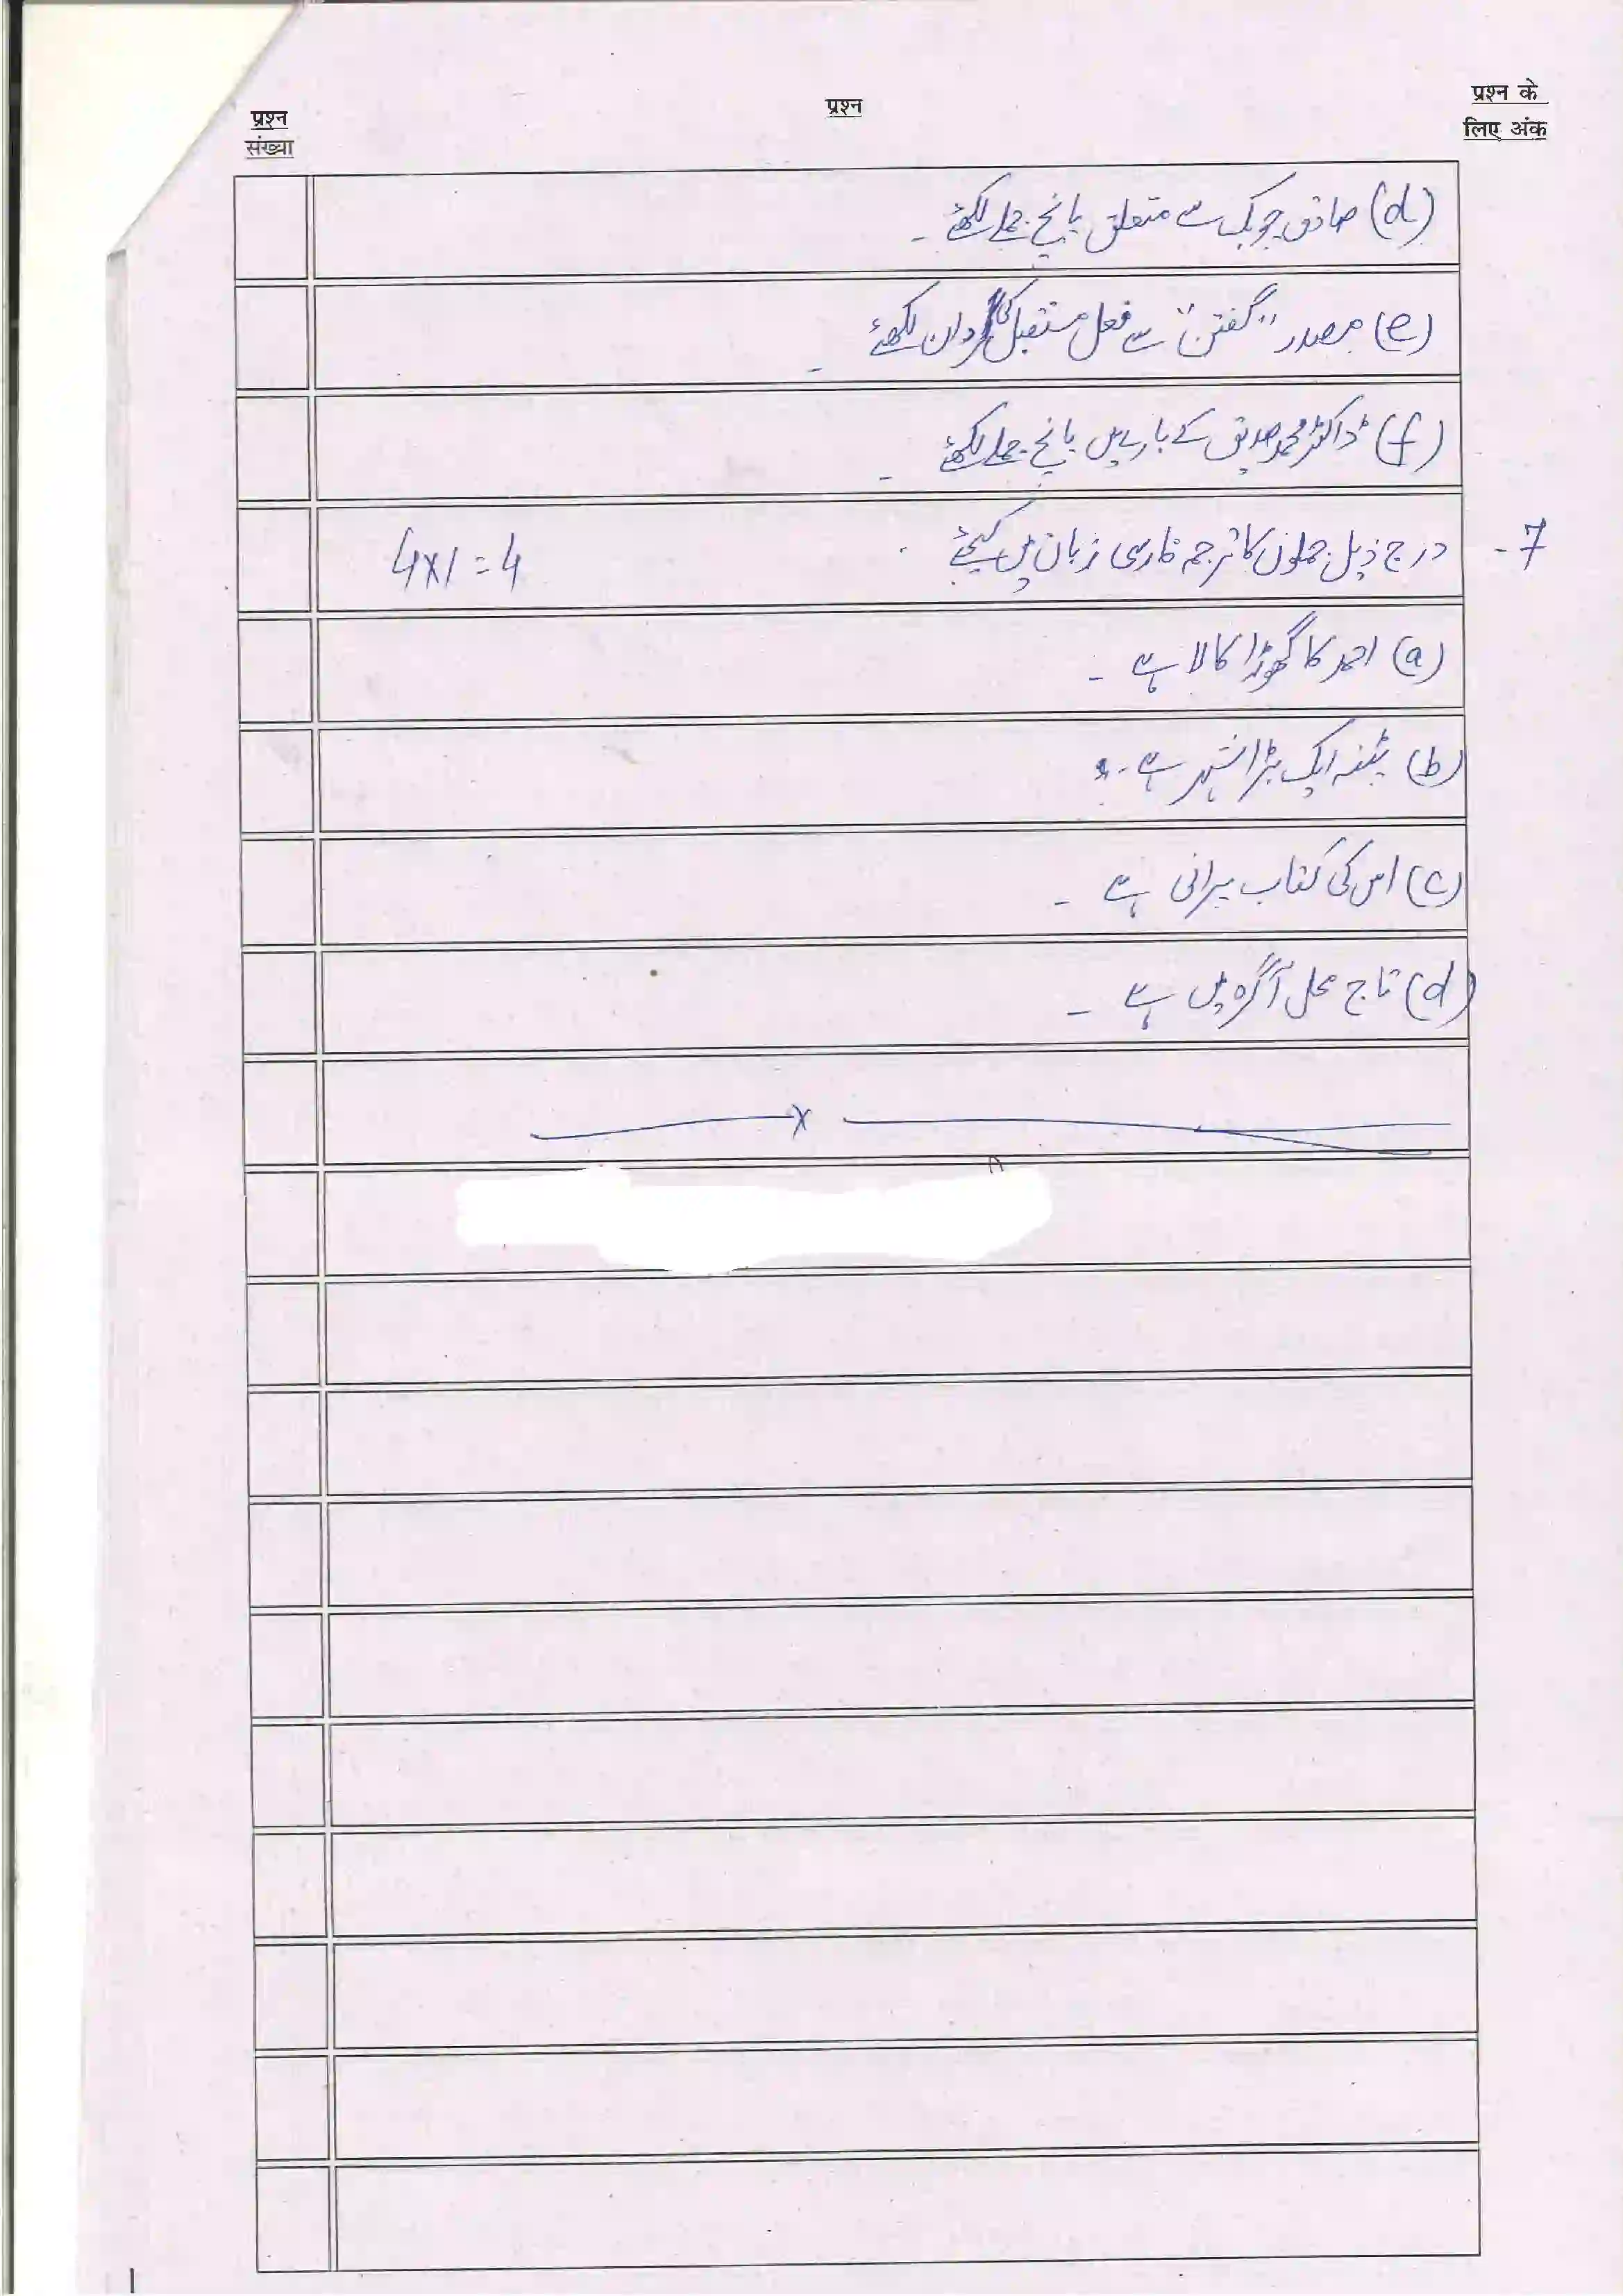 प्रश्न संख्या
प्रश्न
प्रश्न के लिए अंक
(d) صادق چوبک سے متعلق پانچ جملے لکھئے ۔
(e) مصدر "گفتن" سے فعل مستقبل کا گردان لکھئے ۔
(f) ڈاکٹر محمد صدیق کے بارے میں پانچ جملے لکھئے ۔
7- درج ذیل جملوں کا ترجمہ فارسی زبان میں کیجئے 4x1=4
(a) احمد کا گھوڑا کالا ہے ۔
(b) پٹنہ ایک بڑا شہر ہے ۔
(c) اس کی کتاب پرانی ہے ۔
(d) تاج محل آگرہ میں ہے ۔
x